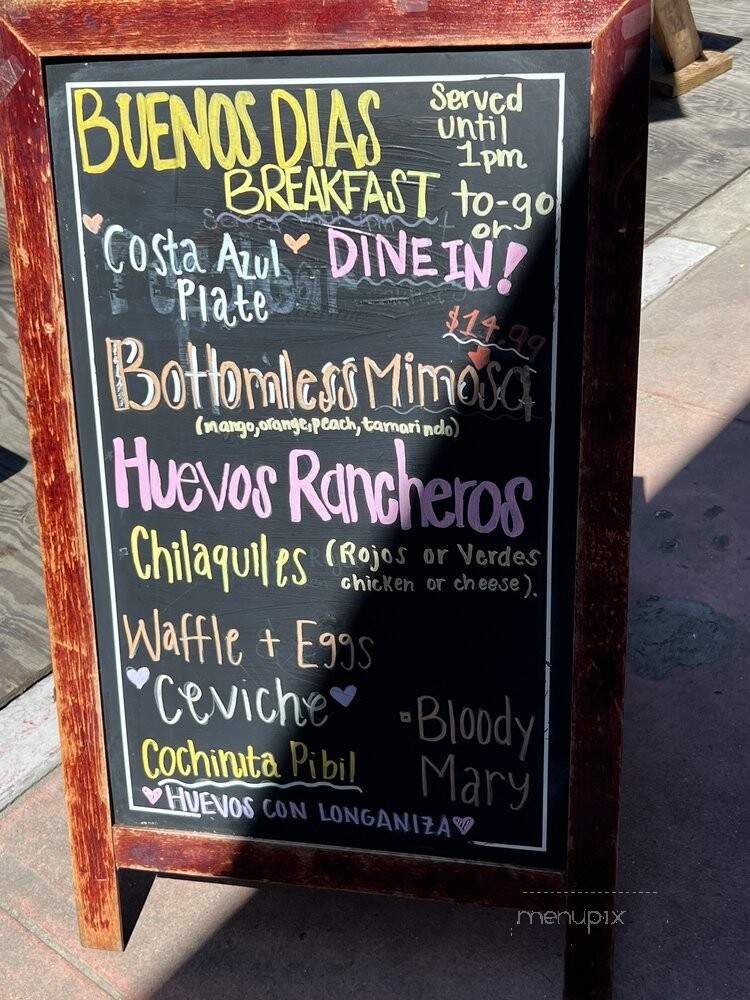 BUENOS DIAS
BREAKFAST
served
until
1pm
to-go
or
DINE IN!
Costa Azul
Plate
$14.99
Bottomless Mimosa
(mango, orange, peach, tamarindo)
Huevos Rancheros
Chilaquiles (Rojos or Verdes
chicken or cheese).
Waffle + Eggs
Ceviche
Bloody
Mary
Cochinita Pibil
HUEVOS CON LONGANIZA
menupix